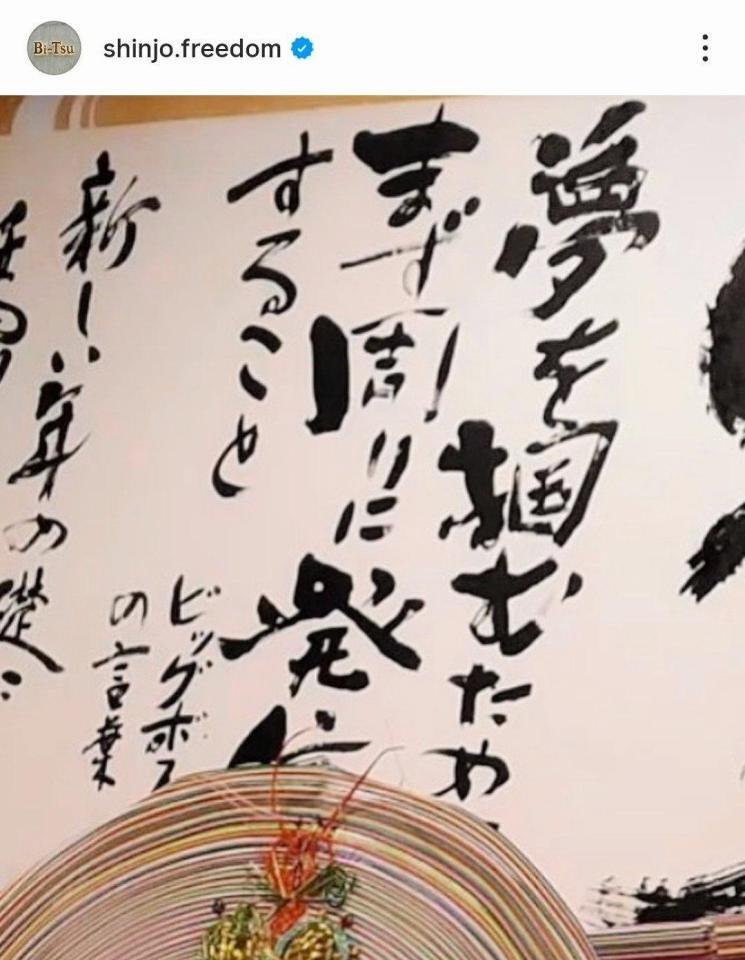 Bi-Tsu
shinjo.freedom
夢を掴むため
まず周りに発
すること
ビッグボス
の言葉
新しい年の礎に